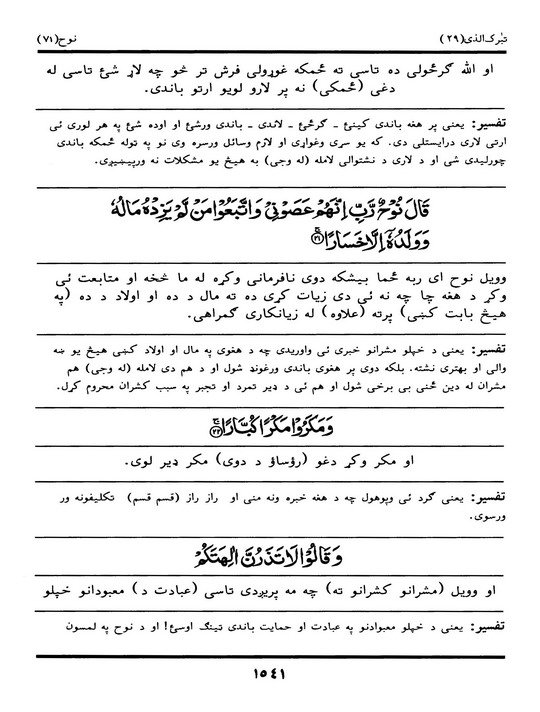 تبٰرک الذی (۲۹) نوح (۷۱)
او الله ګرځولی ده تاسی ته ځمکه غوړولی فرش تر څو چه لاړ شئ تاسی له
دغی (ځمکی) نه پر لارو لویو ارتو باندی.
تفسیر: یعنی پر هغه باندی کینئ ـ ګرځئ ـ لاندی ـ باندی ورشئ او اوده شئ په هر لوری ئی
ارتی لاری درایستلی دی. که یو سړی وغواړی او لازم وسائل ورسره وی نو په توله ځمکه باندی
چورلیدی شی او د لاری د نشتوالی لامله (له وجی) به هیڅ یو مشکلات نه ورپیښیږی.
قَالَ نُوْحٌ رَّبِّ اِنَّهُمْ عَصَوْنِیْ وَاتَّبَعُوْا مَنْ لَّمْ یَزِدْهُ مَالُهٗ
وَوَلَدُهٗٓ اِلَّا خَسَارًا ﴿۲۱﴾
وویل نوح ای ربه ځما بیشکه دوی نافرمانی وکړه له ما څخه او متابعت ئی
وکړ د هغه چا چه نه ئی دی زیات کړی ده ته مال د ده او اولاد د ده (په
هیڅ بابت کښی) پرته (علاوه) له زیانکاری ګمراهی.
تفسیر: یعنی د خپلو مشرانو خبری ئی واوریدی چه د هغوی په مال او اولاد کښی هیڅ یو ښه
والی او بهتری نشته. بلکه دوی پر هغوی باندی ورغوند شول او د هم دی لامله (له وجی) هم
مشران له دین ځنی بی برخی شول او هم ئی د ډیر تمرد او تجبر په سبب کشران محروم کړل.
وَمَكَرُوْا مَكْرًا كُبَّارًا ﴿۲۲﴾
او مکر وکړ دغو (رؤساؤ د دوی) مکر ډیر لوی.
تفسیر: یعنی ګرد ئی وپوهول چه د هغه خبره ونه منی او راز راز (قسم قسم) تکلیفونه ور
ورسوی.
وَقَالُوْا لَا تَذَرُنَّ اٰلِهَتَكُمْ
او وویل (مشرانو کشرانو ته) چه مه پریږدی تاسی (عبادت د) معبودانو خپلو
تفسیر: یعنی د خپلو معبوادنو په عبادت او حمایت باندی ټینګ اوسئ! او د نوح په لمسون
۱۵۴۱